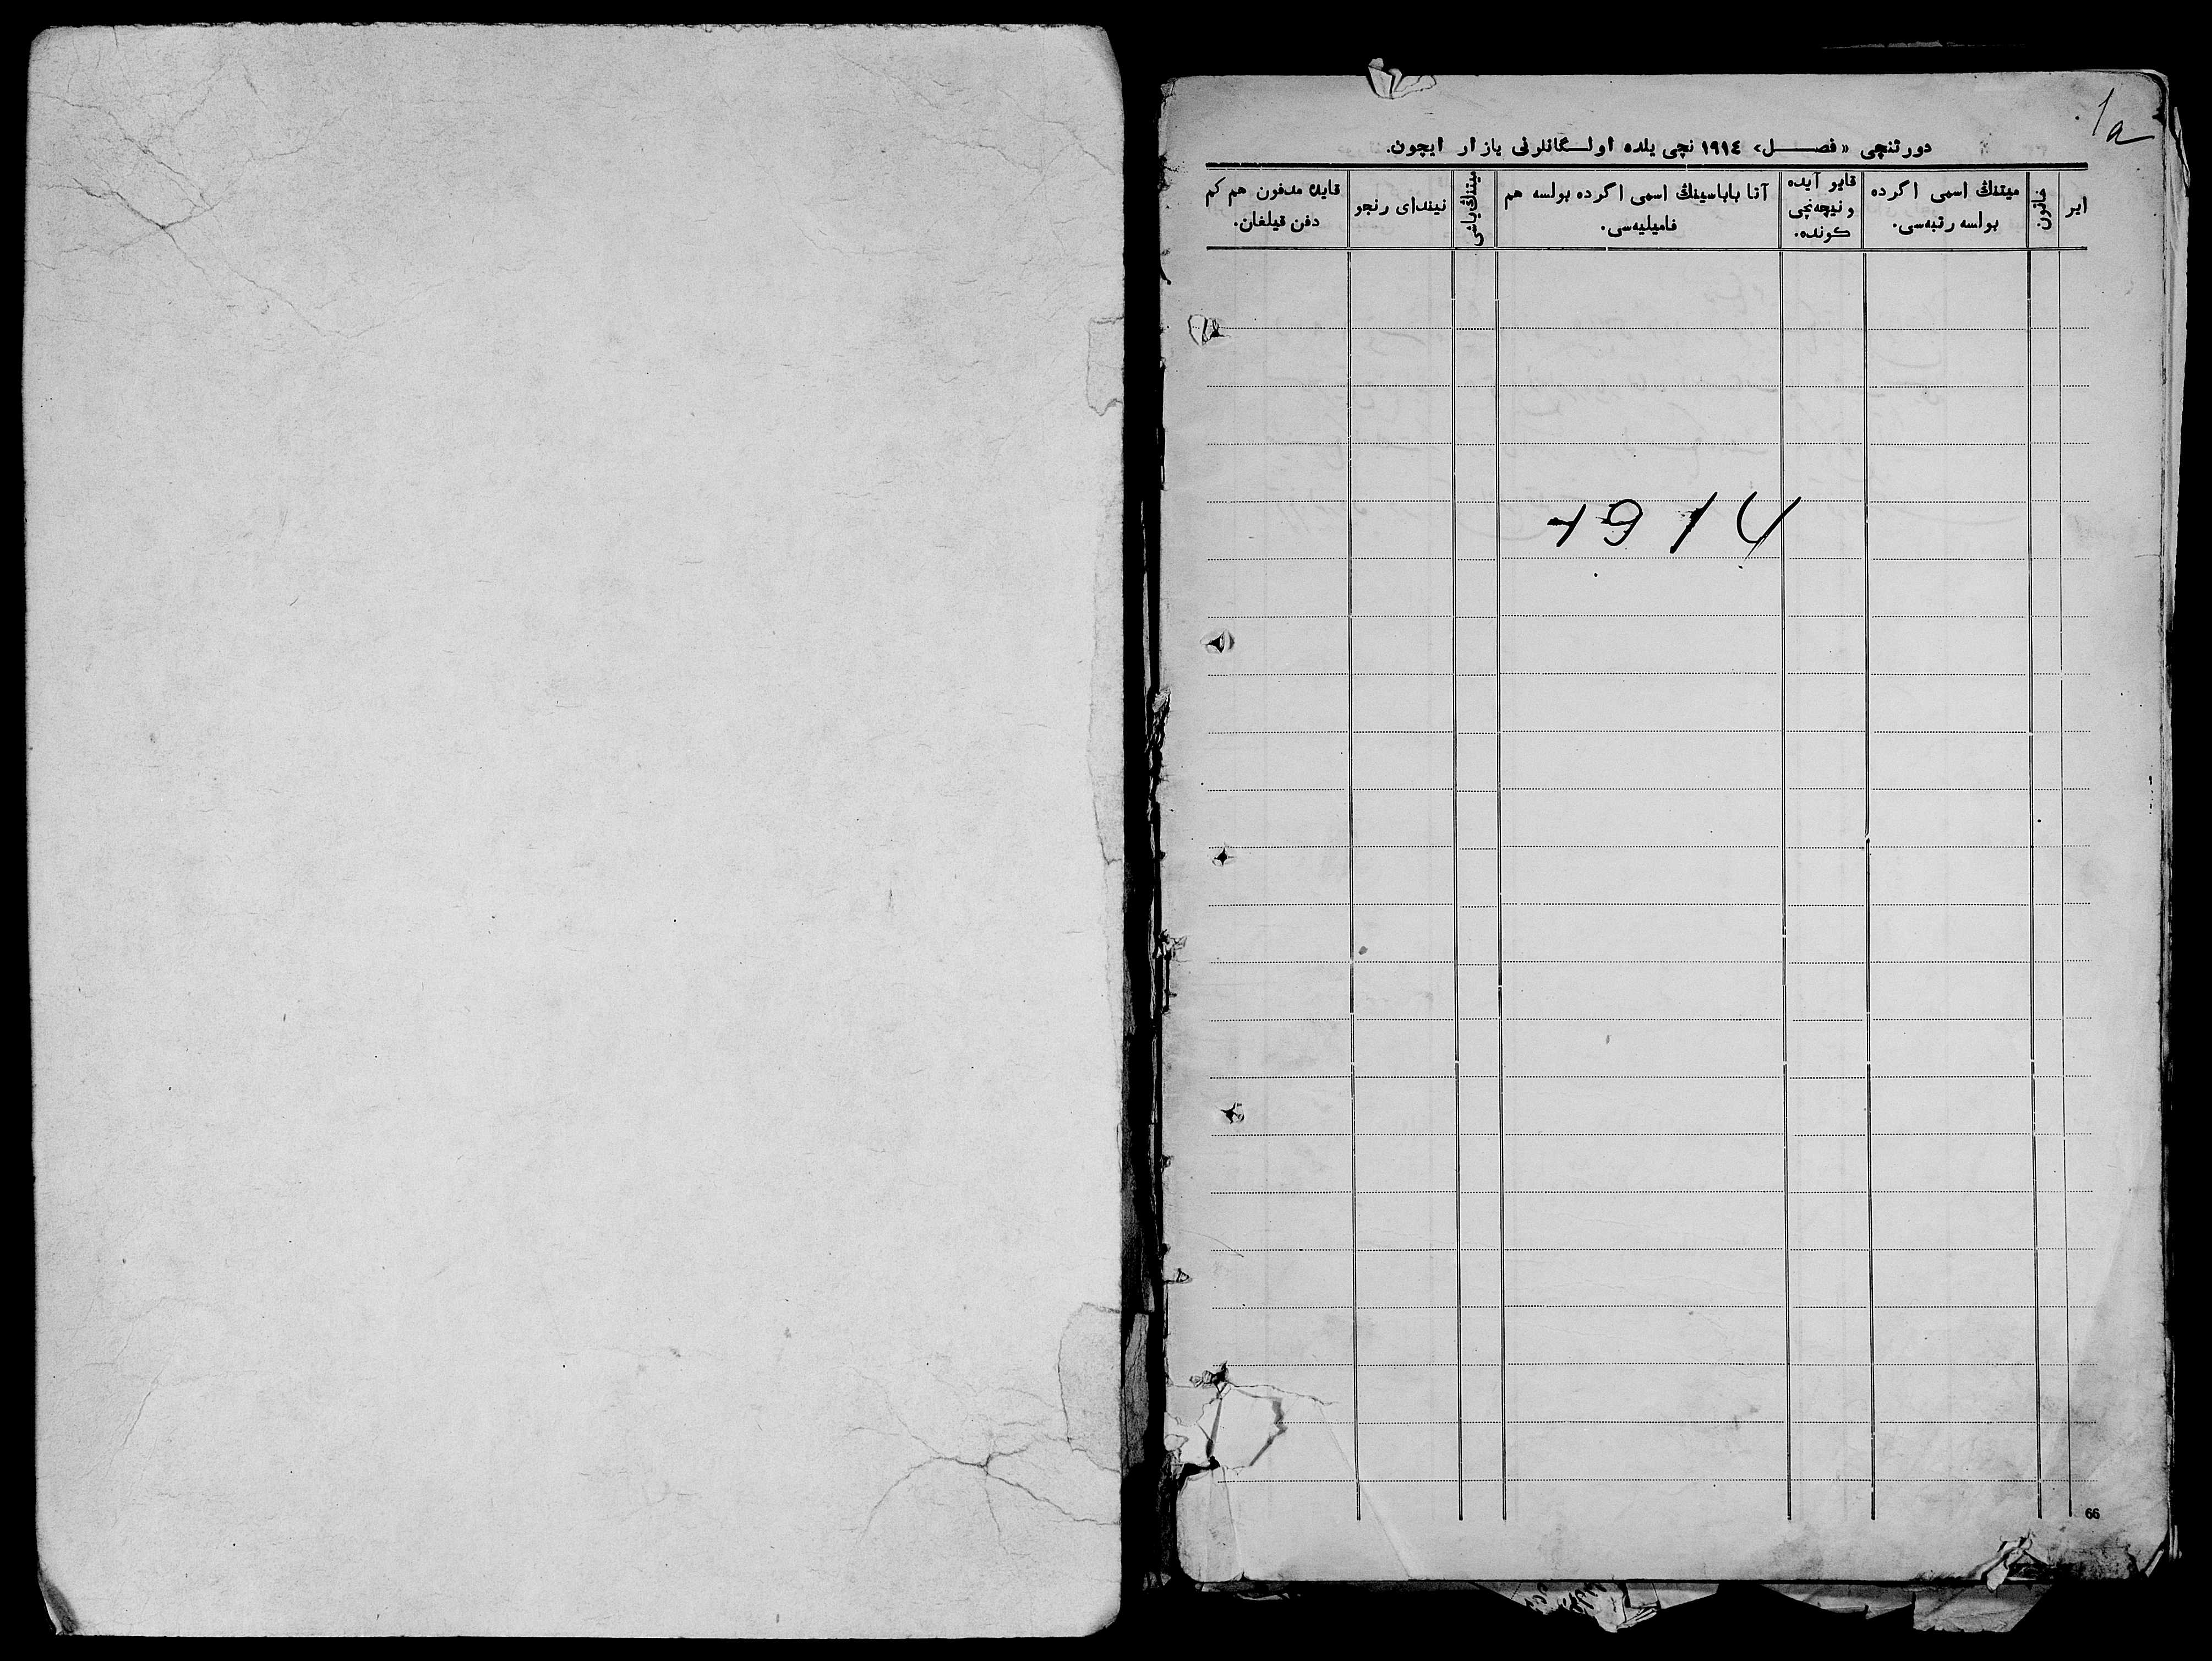 1a
دورتنچی «فصل» ١٩١٤ نچی یلده اولگانلرنی یازار ایچون.
ایر
خاتون
میتنڭ اسمی اگرده
بولسه رتبه‌سی.
قایو آیده
و نیچه‌نچی
کونده.
آتا باباسینڭ اسمی اگرده بولسه هم
فامیلیه‌سی.
میتنڭ یاشی
نیندای رنجو
قایده مدفون هم کم
دفن قیلغان.
66